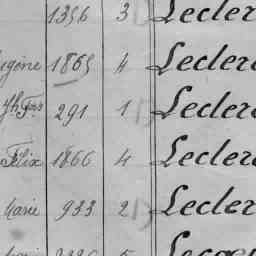 1356 3 Lecler
ugène 1865 4 Lecler
Jh Fois 291 1 Lecler
Félix 1866 4 Lecler
Marie 933 2 Lecler